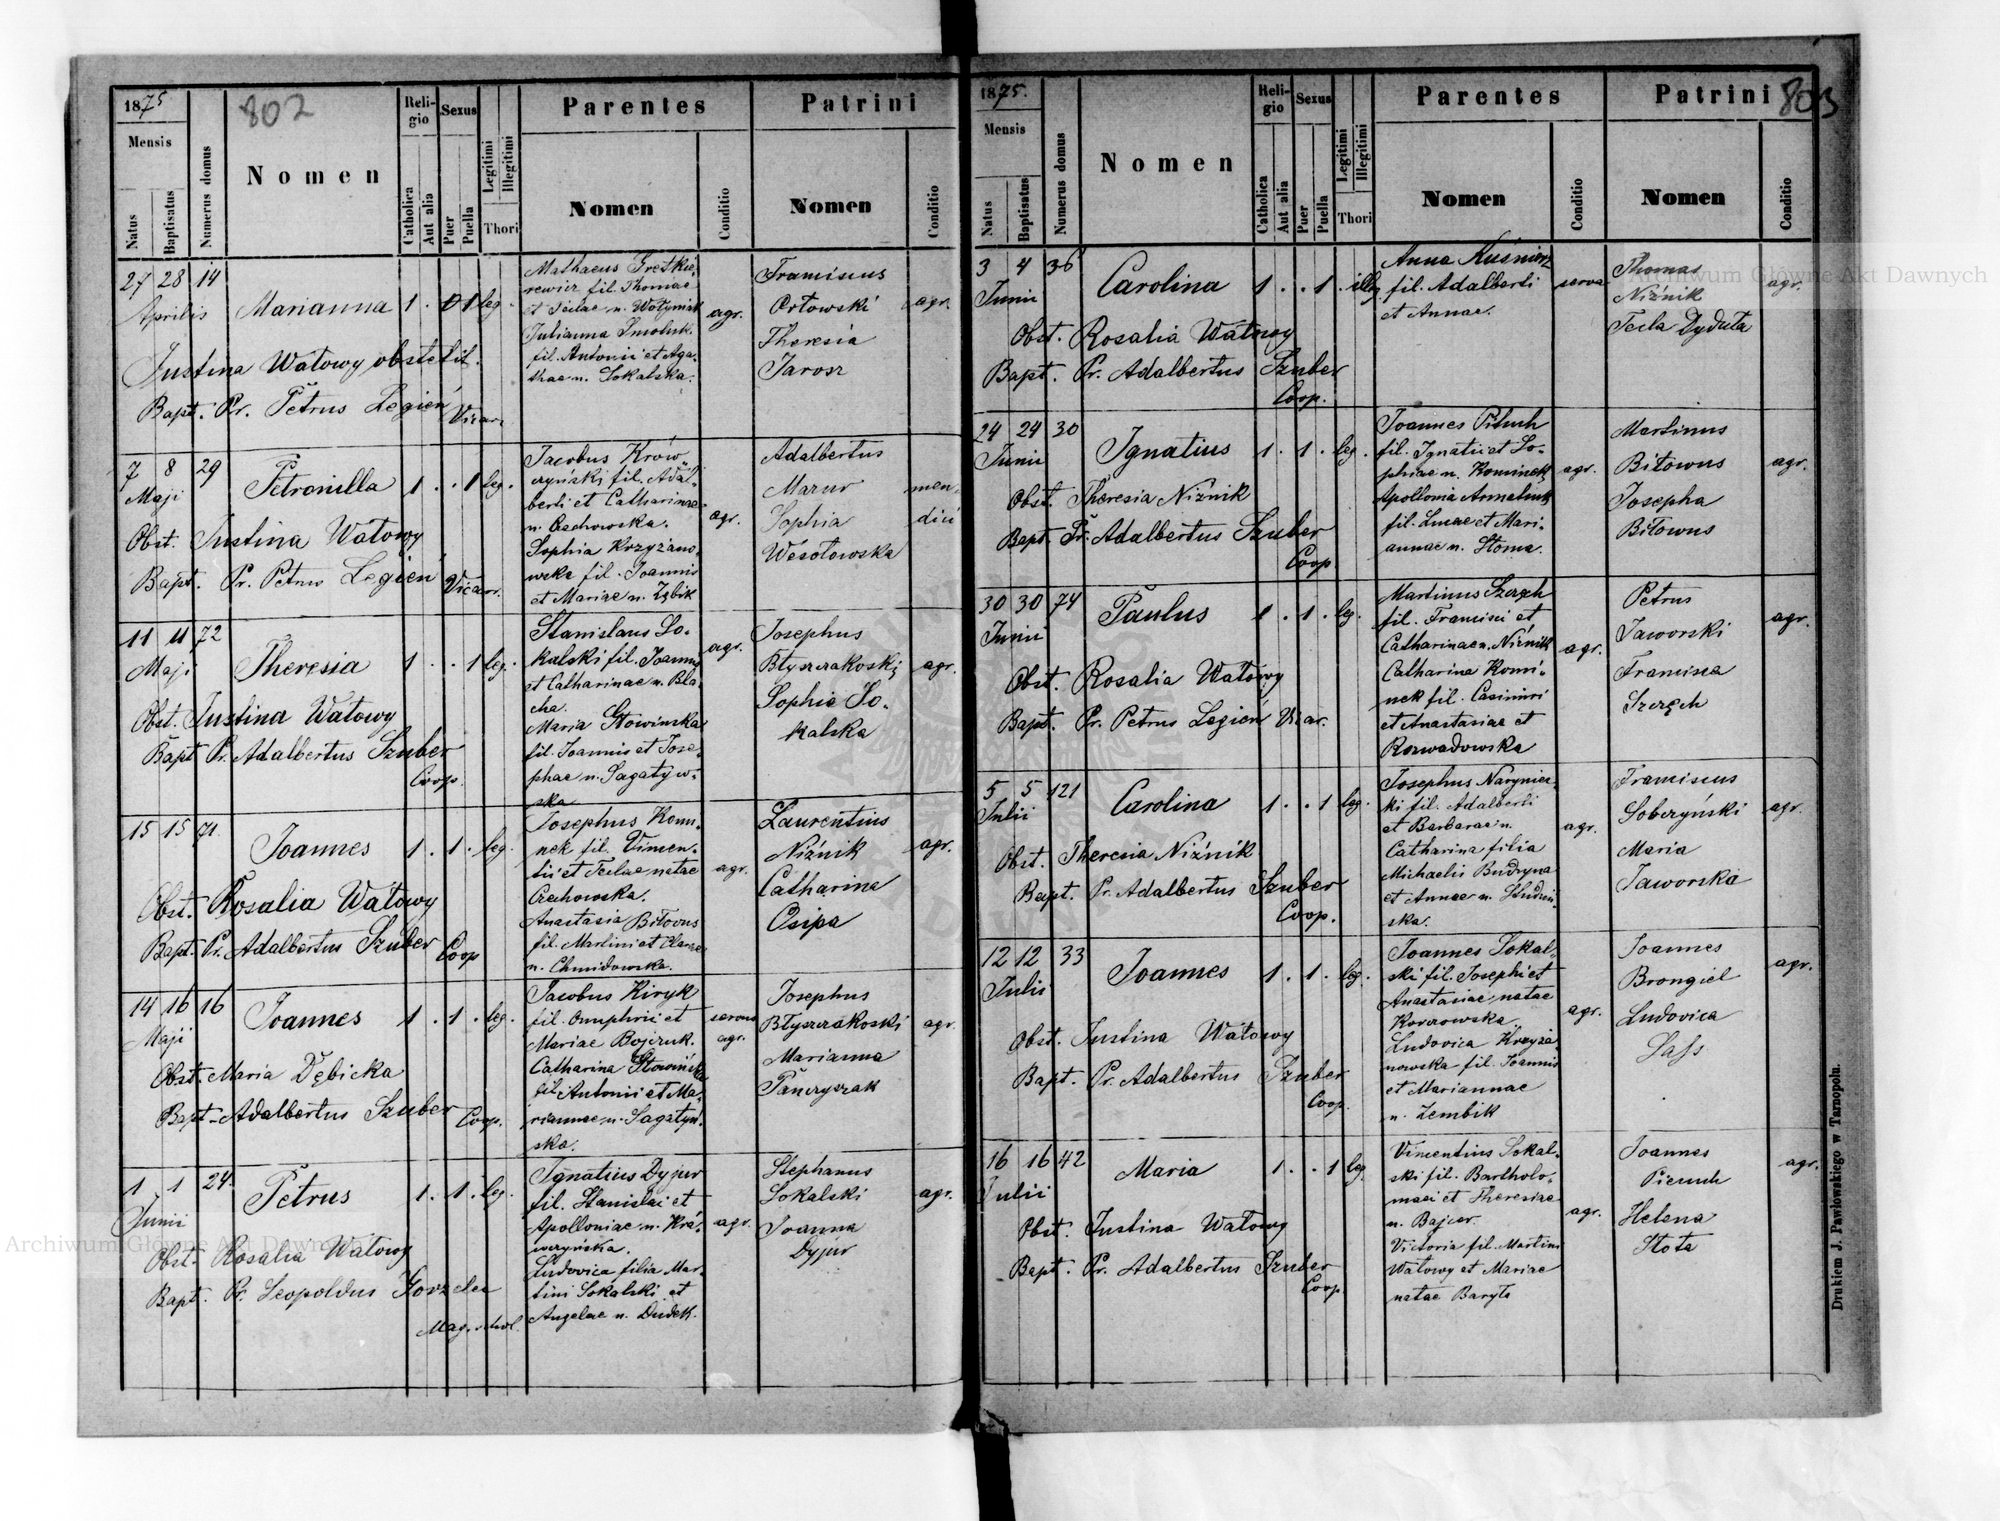 1875
802
Mensis
Natus
Baptisatus
Numerus domus
Nomen
Religio
Catholica
Aut alia
Sexus
Puer
Puella
Legitimi
Illegitimi
Thori
Parentes
Nomen
Conditio
Patrini
Nomen
Conditio
27 28 14
Aprilis
Marianna 1 . 1 leg.
Justina Watowy obstetit.
Bapt. Pr. Petrus Legień Vicar.
Mathaeus
fil. Thomae
et Teclae n.
Julianna
fil. Antonii et Aga-
thae n. Sokalska.
agr.
Franciscus
Orłowski
Theresia
Jarosz
agr.
7 8 29
Maji
Petronilla 1 . . 1 leg.
Obst. Justina Watowy
Bapt. Pr. Petrus Legień Vicar.
Jacobus Krów-
czyński fil. Adal-
berti et Catharinae
n. Czechowska.
Sophia Krzyżano-
wska fil. Joannis
et Mariae n. Zębik
agr.
Adalbertus
Mazur
Sophia
Wesołowska
men-
dici
11 11 72
Maji
Theresia 1 . . 1 leg.
Obst. Justina Watowy
Bapt Pr. Adalbertus Szuber
Coop.
Stanislaus So-
kalski fil. Joannis
et Catharinae n. Bla-
cha.
Maria Głowinska
fil. Joannis et Jose-
phae n. Sagatyw-
ska
agr.
Josephus
Błyszczakoski
Sophia So-
kalska
agr.
15 15 71
Joannes 1 . 1 . leg.
Obst. Rosalia Watowy
Bapt. Pr. Adalbertus Szuber Coop
Josephus Komi-
nek fil. Vincen-
tii et Teclae natae
Czechowska.
Anastasia Biłowus
fil. Martini et
n. Chmidowska.
agr.
Laurentius
Niźnik
Catharina
Osipa
agr.
14 16 16
Maji
Joannes 1 . 1 . leg.
Obst. Maria Dębicka
Bapt. Adalbertus Szuber Coop.
Jacobus Kiryk
fil. Onuphrii et
Mariae Bojczuk.
Catharina Głowińska
fil. Antonii et Ma-
riannae n. Sagatyń-
ska.
servus
agr.
Josephus
Błyszczakoski
Marianna
Pańczyszak
agr.
1 1 24
Junii
Petrus 1 . 1 . leg.
Obst. Rosalia Watowy
Bapt. Pr. Leopoldus
Ignatius Dyjur
fil. Stanislai et
Apolloniae n. Kra-
wczyńska.
Ludovica filia Mar-
tini Sokalski et
Angelae n. Dudek.
agr.
Stephanus
Sokalski
Joanna
Dyjur
agr.
Archiwum Główne Akt Dawnych
1875.
803
Mensis
Natus
Baptisatus
Numerus domus
Nomen
Religio
Catholica
Aut alia
Sexus
Puer
Puella
Legitimi
Illegitimi
Thori
Parentes
Nomen
Conditio
Patrini
Nomen
Conditio
3 4 36
Junii
Carolina 1 . . 1 . illeg.
Obst. Rosalia Watowy
Bapt. Pr. Adalbertus Szuber
Coop.
Anna Kuśnierz
fil. Adalberti
et Annae.
serva
Thomas
Niźnik
Tecla Dyduła
agr.
Archiwum Główne Akt Dawnych
24 24 30
Junii
Ignatius 1 . 1 . leg.
Obst. Theresia Niźnik
Bapt. Pr. Adalbertus Szuber
Coop
Joannes Piluch
fil. Ignatii et So-
phiae n. Kominek
Apollonia
fil. Lucae et Mari-
annae n. Słoma.
agr.
Martinus
Biłowus
Josepha
Biłowus
agr.
30 30 74
Junii
Paulus 1 . 1 . leg.
Obst. Rosalia Watowy
Bapt. Pr. Petrus Legień Vicar.
Martinus Szczęch
fil. Francisci et
Catharinae n. Niźnik
Catharina Komi-
nek fil. Casimiri
et Anastasiae et
Rozwadowska
agr.
Petrus
Jaworski
Francisca
Szczęch
agr.
5 5 121
Julii
Carolina 1 . . 1 leg.
Obst. Theresia Niźnik
Bapt. Pr. Adalbertus Szuber
Coop.
Josephus
ki fil. Adalberti
et Barbarae n.
Catharina filia
Michaelis Budzyna
et Annae n. Studzin-
ska.
agr.
Franciscus
Soberzyński
Maria
Jaworska
agr.
12 12 33
Julii
Joannes 1 . 1 . leg.
Obst. Justina Watowy
Bapt. Pr. Adalbertus Szuber
Coop.
Joannes Sokal-
ski fil. Josephi et
Anastasiae natae
Korzowska
Ludovica Krzyża-
nowska fil. Joannis
et Mariannae
n. Zembik
agr.
Joannes
Brongiel
Ludovica
Sass
agr.
16 16 42
Julii
Maria 1 . . 1 leg.
Obst. Justina Watowy
Bapt. Pr. Adalbertus Szuber
Coop.
Vincentius Sokal-
ski fil. Bartholo-
maei et Theresiae
n. Bajcar.
Victoria fil. Martini
Watowy et Mariae
natae Baryła
agr.
Joannes
Pieruch
Helena
Słota
agr.
Drukiem J. Pawłowskiego w Tarnopolu.